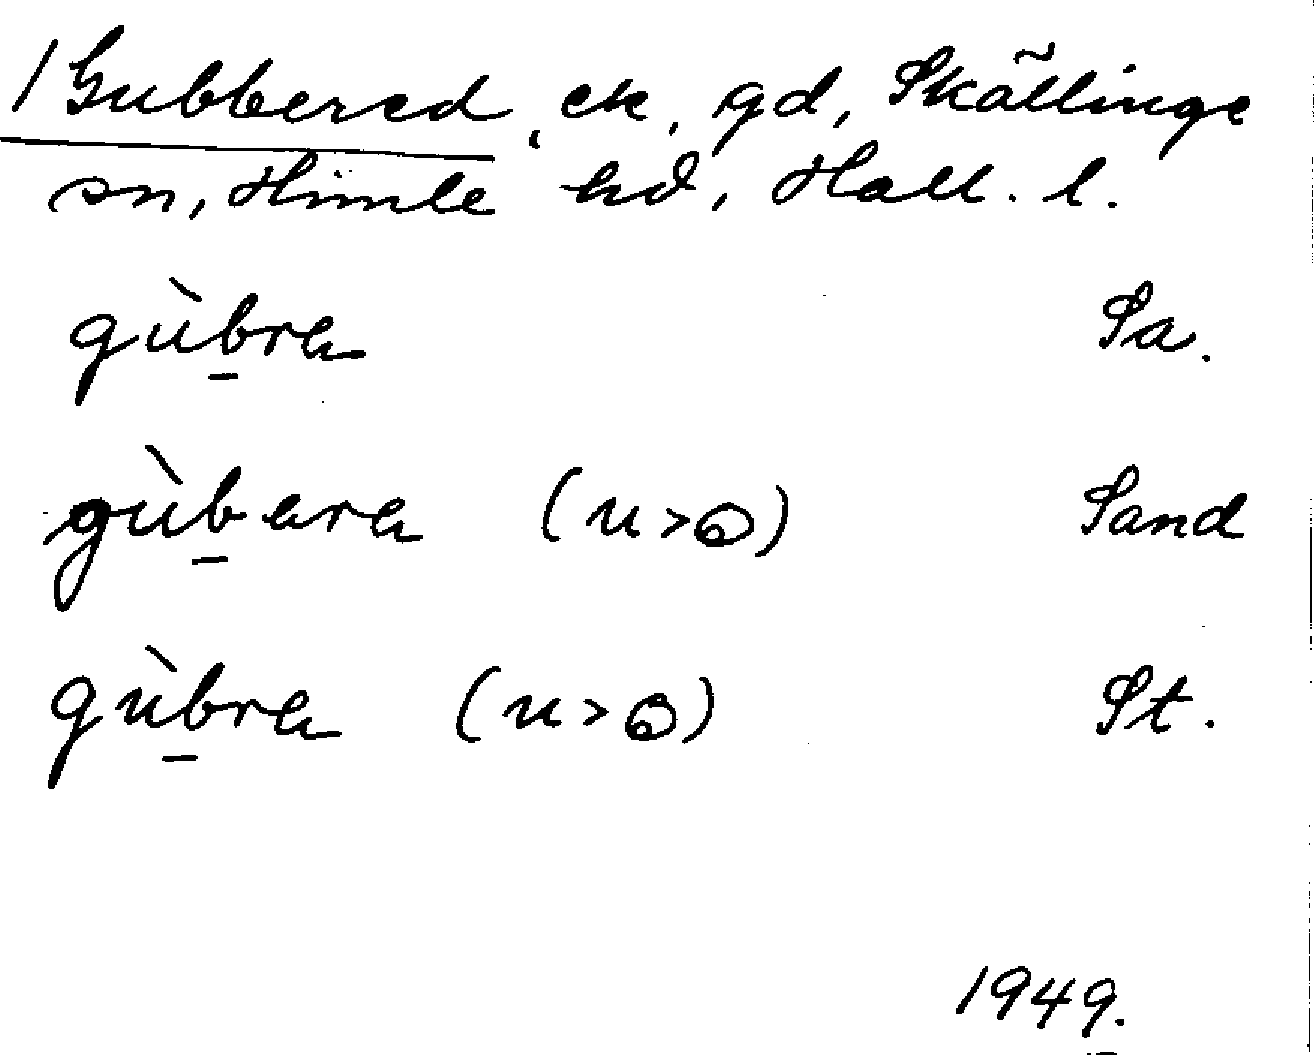 / Gubbered, ek, gd, Skällinge
sn, Himle hd, Hall. l.
gùb̲ra Sa.
gùb̲ara (u>ɷ) Sand
gùb̲ra (u>ɷ) St.
1949.